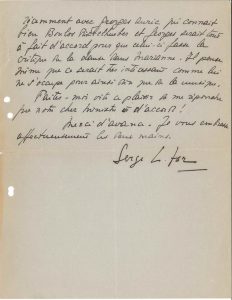 notamment avec Georges Auric qui connait
bien Boulos Ristelhueber et Georges serait tout
à fait d'accord pour que celui-ci fasse la
critique de la danse dans Marianne. Il pense
même que ce serait très intéressant comme lui
ne s'occupe pour ainsi dire que de la musique.
Faites-moi vite ce plaisir de me répondre
que notre cher ministre est d'accord!
Merci d'avance. Je vous embrasse
affectueusement les deux mains.
Serge Lifar